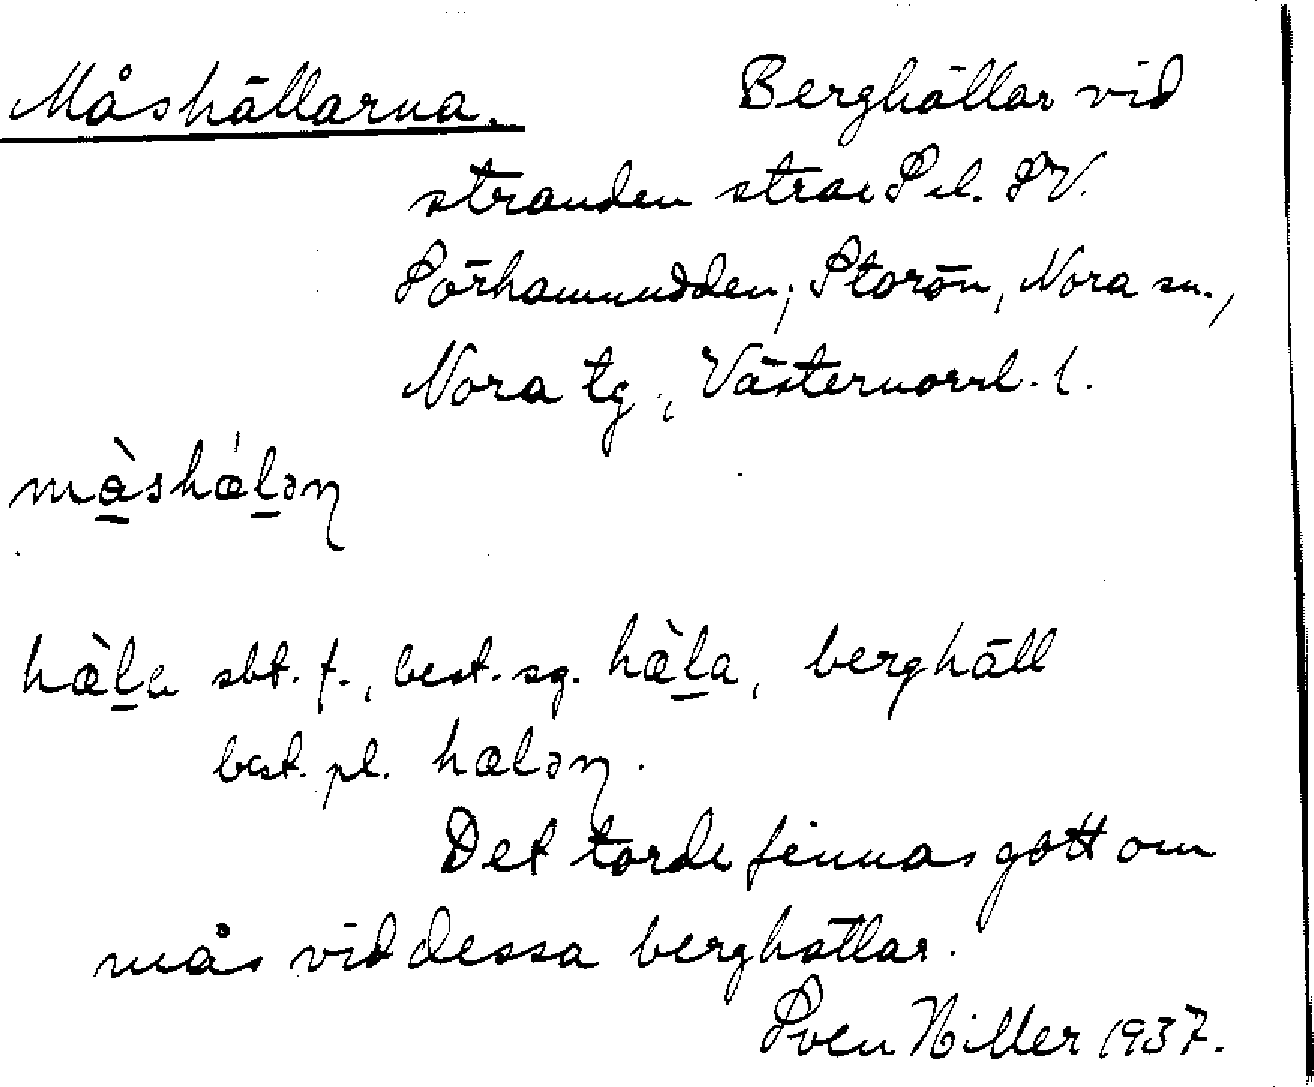 Måshällarna. Berghällar vid
stranden strax S el. SV.
Sörhamnudden, Storön, Nora sn.,
Nora tg., Västernorrl. l.
mɑ̀shæ̀lən
hæ̀la sbt. f., best. sg. hæ̀la, berghäll
best. pl. hælən.
Det torde finnas gott om
mås vid dessa berghällar.
Sven Hiller 1937.